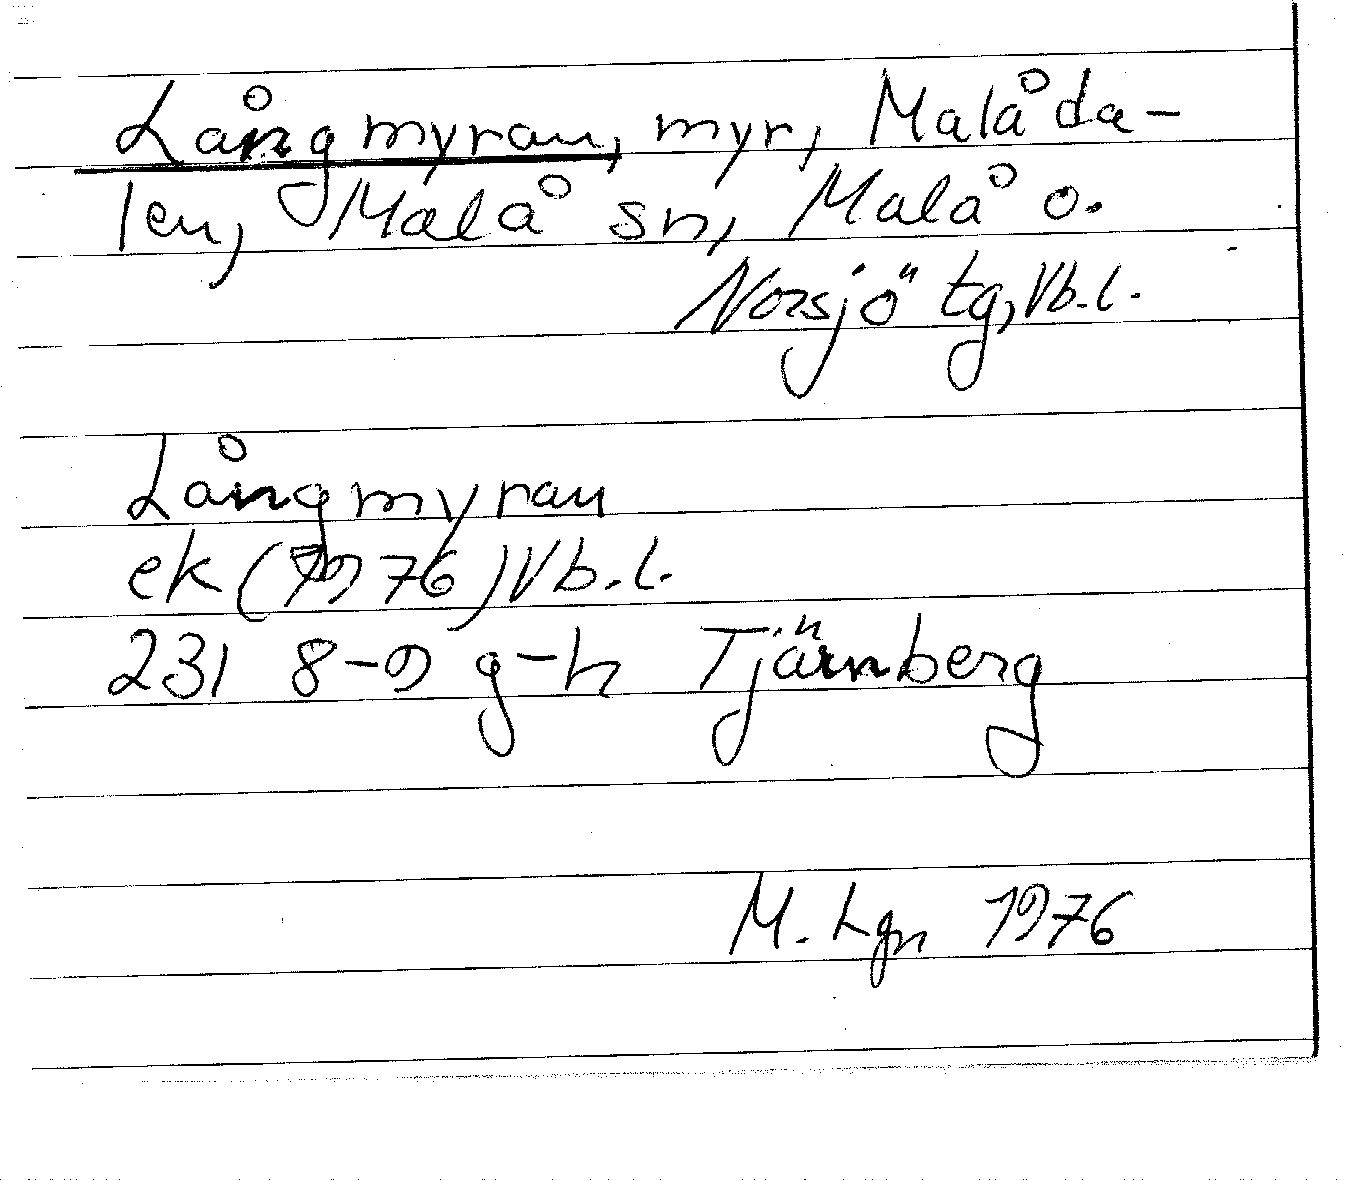 Långmyran, myr, Malåda-
len, Malå sn, Malå o.
Norsjö tg, Vb.l.
Långmyran
ek (1976) Vb.l.
231 8-9 g-h Tjärnberg
M. Lgn 1976